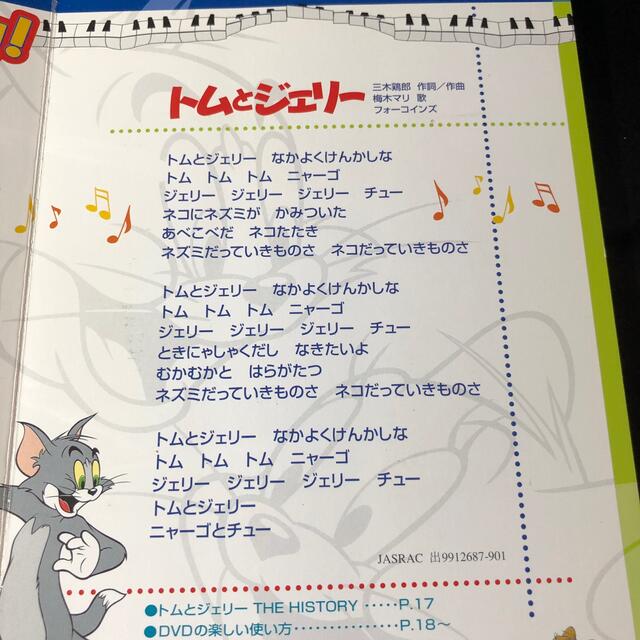 !
トムとジェリー
三木鶏郎 作詞／作曲
梅木マリ 歌
フォーコインズ
トムとジェリー なかよくけんかしな
トム トム トム ニャーゴ
ジェリー ジェリー ジェリー チュー
ネコにネズミが かみついた
あべこべだ ネコたたき
ネズミだっていきものさ ネコだっていきものさ
トムとジェリー なかよくけんかしな
トム トム トム ニャーゴ
ジェリー ジェリー ジェリー チュー
ときにゃしゃくだし なきたいよ
むかむかと はらがたつ
ネズミだっていきものさ ネコだっていきものさ
トムとジェリー なかよくけんかしな
トム トム トム ニャーゴ
ジェリー ジェリー ジェリー チュー
トムとジェリー
ニャーゴとチュー
JASRAC 出9912687-901
●トムとジェリー THE HISTORY ・・・・・P.17
●DVDの楽しい使い方・・・・・・・・・・・・・・P.18～